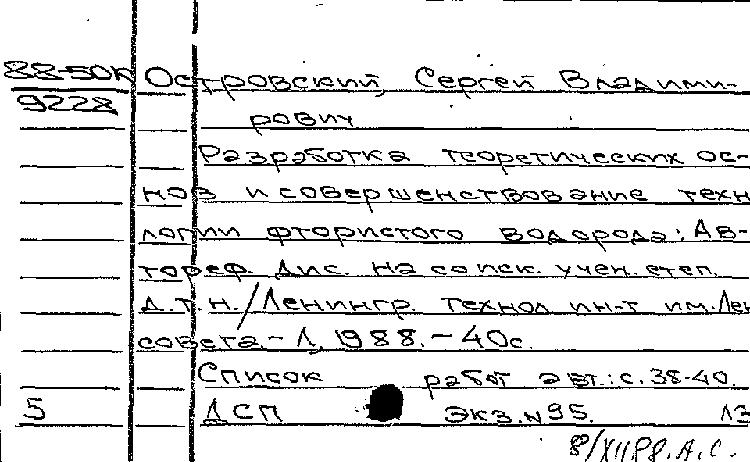 88-50К Островский, Сергей Владими-
9228 рович
Разработка теоретических ос-
нов и совершенствование техно
логии фтористого водорода: Ав-
тореф. дис. на соиск. учен. степ.
д.т.н./Ленингр. технол ин-т им. Лен
совета.- Л, 1988.-40с.
Список работ авт.: с. 38-40.
5 ДСП Экз. №95. ЛЗ
8/XII88. А.С.